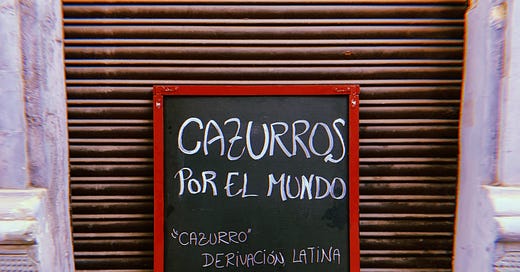 CAZURROS
POR EL MUNDO
"CAZURRO"
DERIVACIÓN LATINA